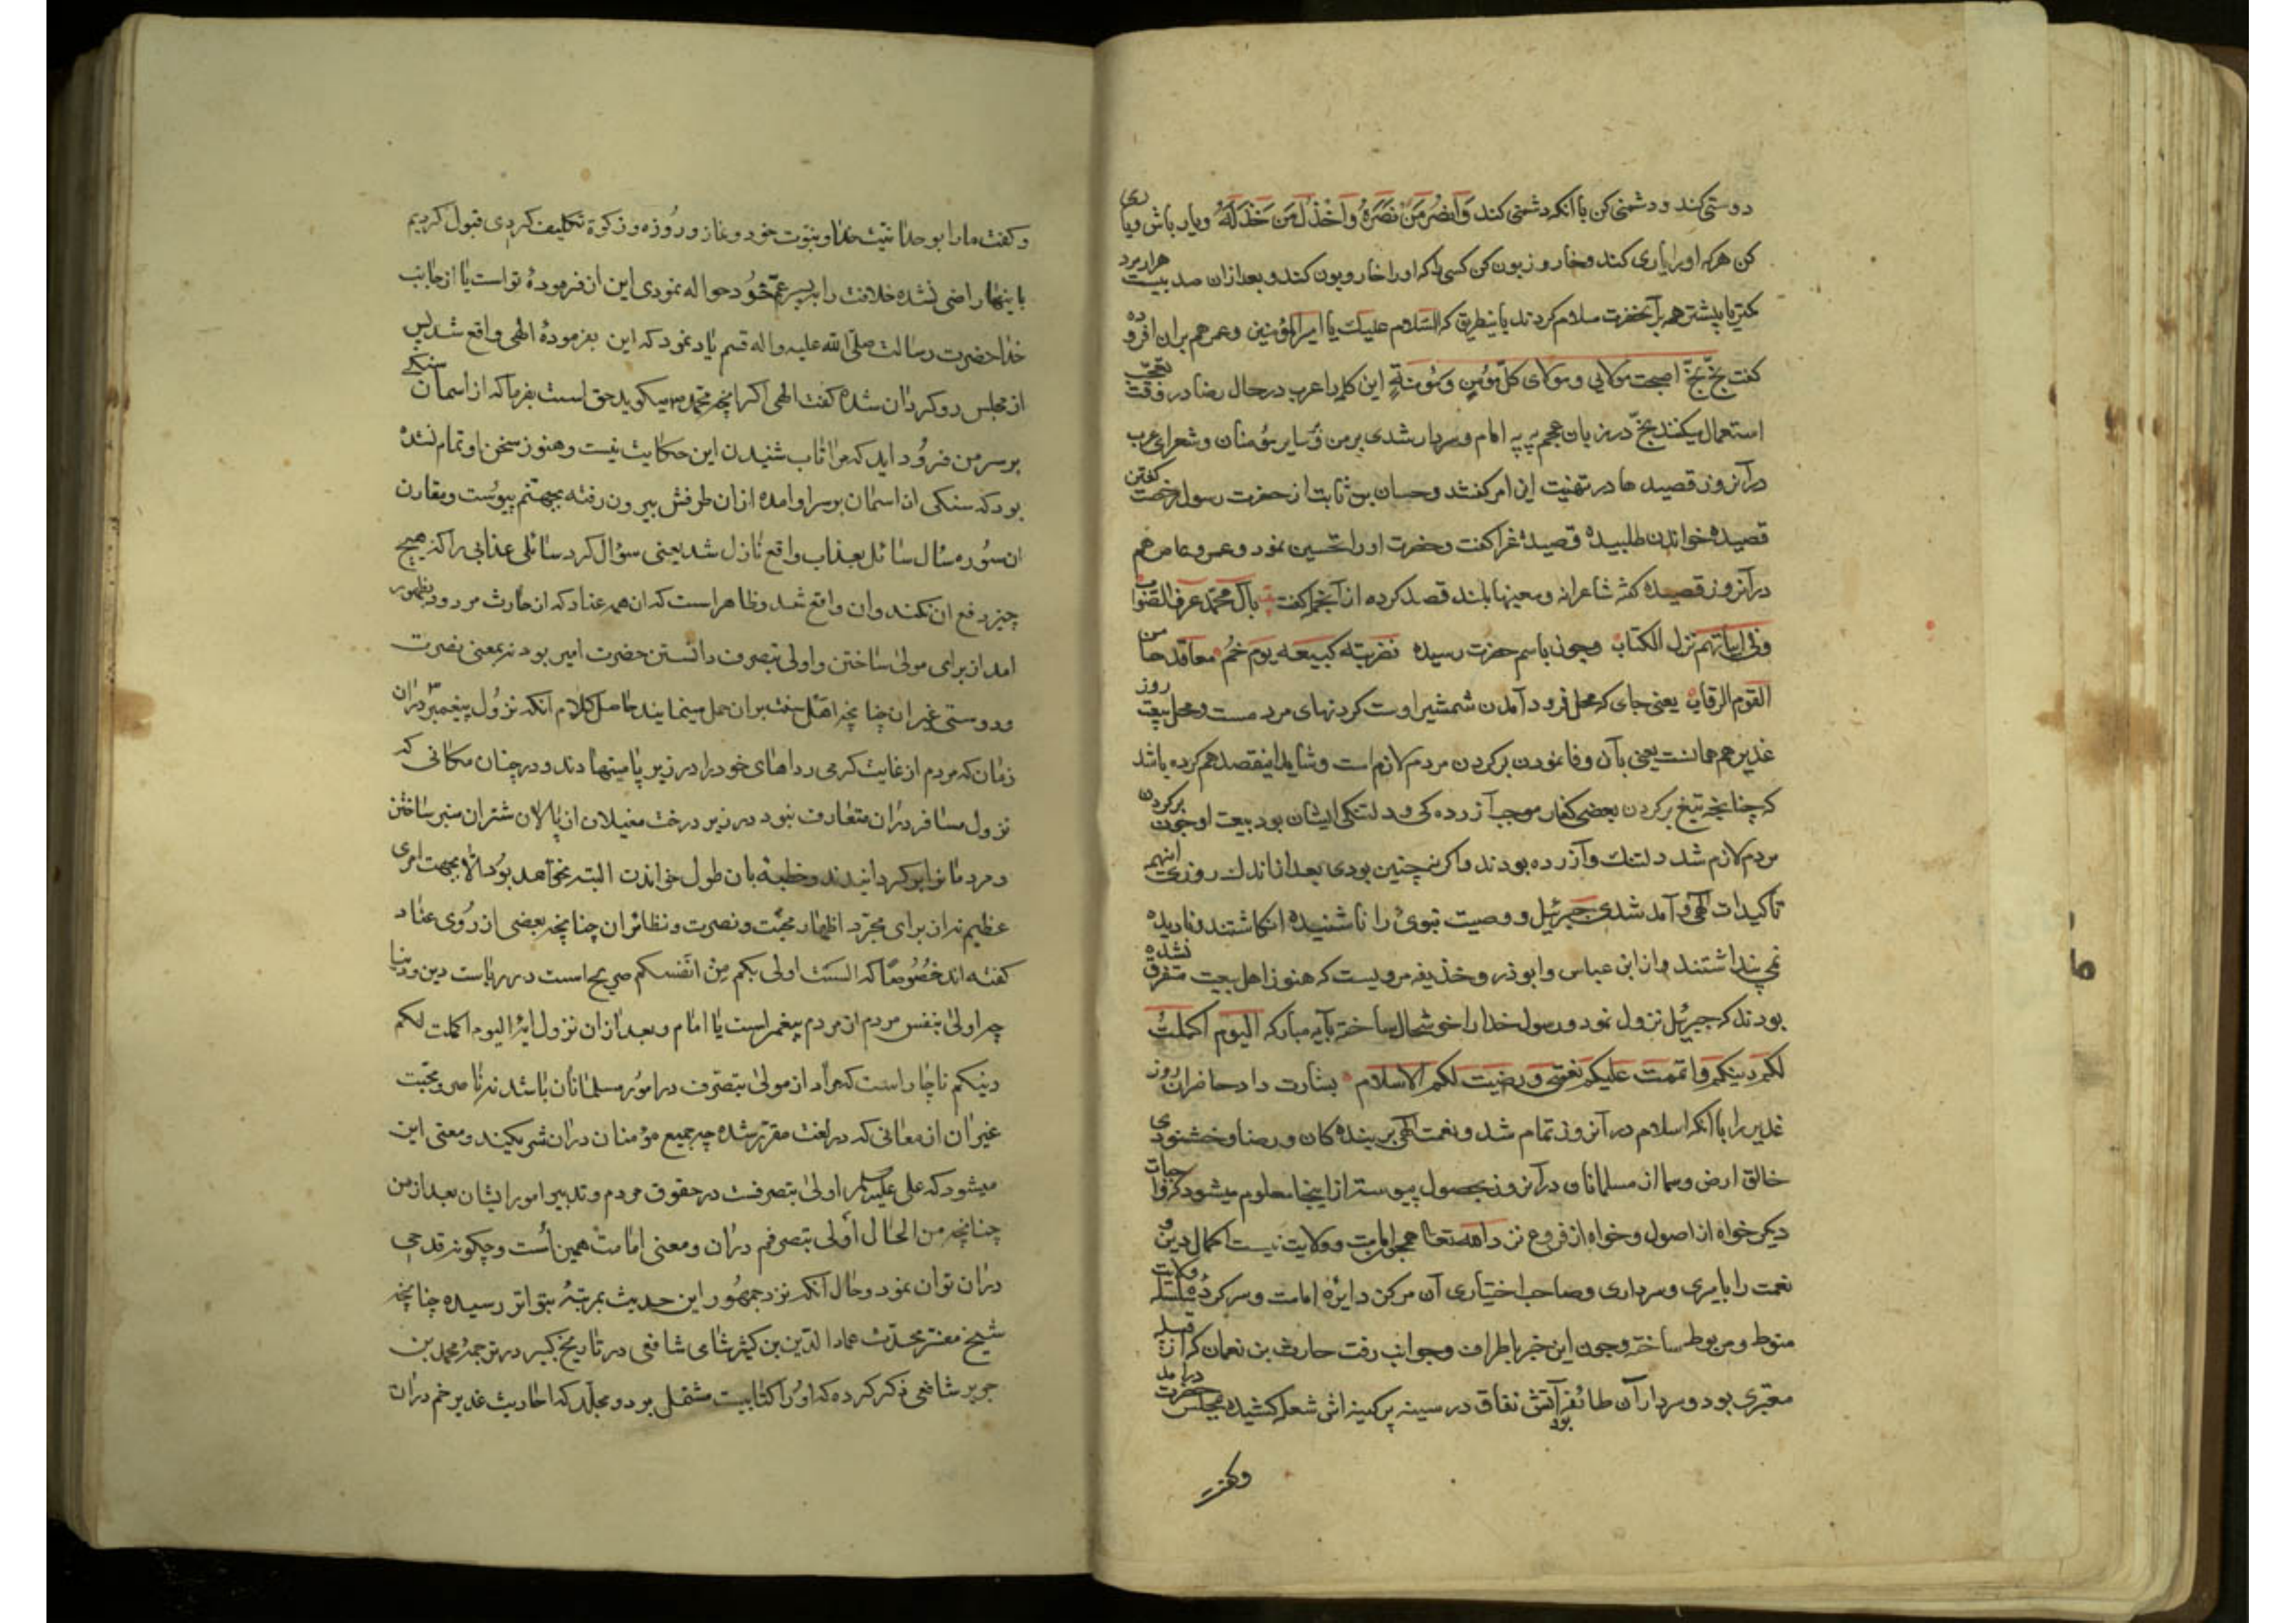 دوستی کند و دشمنی کن با آنکه دشمنی کند وَانصُر مَن نَصَرَهُ وَاخذُل مَن خَذَلَهُ و یار باش و یاری
کن هر که او را یاری کند و خار و زبون کن کسی را که او را خار و زبون کند و بعد از آن صد بیست هزار مرد
کمتر یا بیشتر همه بآنحضرت سلام کردند باینطریق که السّلام علیک یا امیر المؤمنین و عمر هم بران افزوده
گفت بخّ بخّ اصبحت مولایی و مولای کلّ مؤمن و مؤمنة این کلمه را عرب در حال رضا و در وقت تعجّب
استعمال میکنند بخّ در زبان عجم په په امام و سردار شدی بر من و سایر مؤمنان و شعرای عرب
در آنروز قصیده ها در تهنیت این امر گفتند و حسان بن ثابت از حضرت رسول رخصت گفتن
قصیده خواندن طلبیده قصیدهٔ غرا گفت و حضرت او را تحسین نمود و عمرو عاص هم
در آنروز قصیده گفته شاعرانه و معینها بلند قصد کرده از آنجمله گفته بآل محمّد عرف الصّواب
و فی ابیاتهم نزل الکتاب و چون باسم حضرت رسیده فضربته کبیعه یوم خمّ معاقدها من
القوم الرقاب یعنی جای که محل فرود آمدن شمشیر اوست گردنهای مردمست و محل بیعت روز
غدیر هم همانست یعنی بآن وفا نمودن بر گردن مردم لازم است و شاید اینقصد هم کرده باشد
که چنانچه تیغ بر گردن بعضی کفار موجب آزرده کی و دلتنکی ایشان بود بیعت او چون بر گردن
مردم لازم شد دلتنک و آزرده بودند و اگر نه چنین بودی بعد از اندک روزی اینهمه
تاکیدات الهی و آمد شدی جبرئیل و وصیت نبوی را ناشنیده انکاشتند و نادیده
نمی پنداشتند و از ابن عباس و ابوذر و حذیفه مرویست که هنوز اهل بیعت متفرق نشده
بودند که جبرئیل نزول نمود و رسول خدا را خوشحال ساخته بآیه مبارکه الیوم اکملت
لکم دینکم و اتممت علیکم نعمتی و رضیت لکم الاسلام بشارت داد حاضران روز
غدیر را با آنکه اسلام در آنروز تمام شد و نعمت الهی بر بنده کان و رضا و خشنودی
خالق ارض و سما از مسلمانان در آنروز بحصول پیوسته از اینجا معلوم میشود که واجبات
دیگر خواه از اصول و خواه از فروع نزد الله تعالی همچو امامت و ولایت نیست اکمال دین و
نعمت را بامری و سرداری و صاحب اختیاری آن مرکز دایرهٔ امامت و سرکردهٔ سلسله ولایت
منوط و مربوط ساخته و چون این خبر باطراف و جوانب رفت حارث بن نعمان که از قبیله
معتبری بود و سردار آن طائفه بود آتش نفاق در سینه پر کینه اش شعله کشیده بمجلس حضرت درآمد
و گفت
و گفت ما را بوحدانیت خدا و بنبوت خود و نماز و روزه و زکوة تکلیف کردی قبول کردیم
باینها راضی نشده خلافت را بپسر عمّ خود حواله نمودی این از فرمودهٔ تو است یا از جانب
خدا حضرت رسالت صلّی الله علیه واله قسم یاد نمود که این بفرمودهٔ الهی واقع شد پس
از مجلس رو گردان شده گفت الهی اگر انچه محمّد میکوید حق است بفرما که از اسمان سنکی
بر سر من فرود اید که مرا تاب شنیدن این حکایت نیست و هنوز سخن او تمام نشده
بود که سنکی از اسمان بر سر او امده از ان طرفش بیرون رفته بجهنّم پیوست و مقارن
ان سوره سال سائل بعذاب واقع نازل شد یعنی سؤال کرد سائلی عذابی را که هیچ
چیز دفع ان نکند و ان واقع شد و ظاهر است که ان همه عناد که از حارث مردود بظهور
امد از برای مولی ساختن و اولی بتصرف دانستن حضرت امیر بود نه بمعنی نصرت
و دوستی غیر ان چنانچه اهل سنت بر ان حمل مینمایند حاصل کلام انکه نزول پیغمبر در ان
زمان که مردم از غایت کرمی رداهای خود را در زیر پا مینهادند و در چنان مکانی که
نزول مسافر دران متعارف نبود در زیر درخت مغیلان از پالان شتران منبر ساختن
و مردمان را بر کردانیدند و خطبه بان طول خواندن البته نخواهد بود الّا بجهت امری
عظیم نه از برای مجرّد اظهار محبّت و نصرت و نظائر ان چنانچه بعضی از روی عناد
گفته اند خصوصًا که الست اولی بکم من انفسکم صریح است در ریاست دین و دنیا
چه اولی بنفس مردم از مردم پیغمبر است یا امام و بعد از ان نزول ایهٔ الیوم اکملت لکم
دینکم ناچار است که مراد از مولی بتصرف در امور مسلمانان باشد نه ناصر و محبّت
غیر ان از معانی که در لغت مقرّر شده چه جمیع مؤمنان دران شریکند و معنی این
میشود که علی علیه السلم اولی بتصرفست در حقوق مردم و تدبیر امور ایشان بعد از من
چنانچه من الحال اولی بتصرفم دران و معنی امامت همین است و چکونه قدحی
دران توان نمود و حال انکه نزد جمهور این حدیث بمرتبهٔ بتواتر رسیده چنانچه
شیخ مفسّر محدّث عماد الدّین بن کثیر شامی شافعی در تاریخ کبیر در ترجمهٔ محمد بن
جریر شافعی ذکر کرده که او را کتابیست مشتمل بر دو مجلّد که احادیث غدیر خم دران